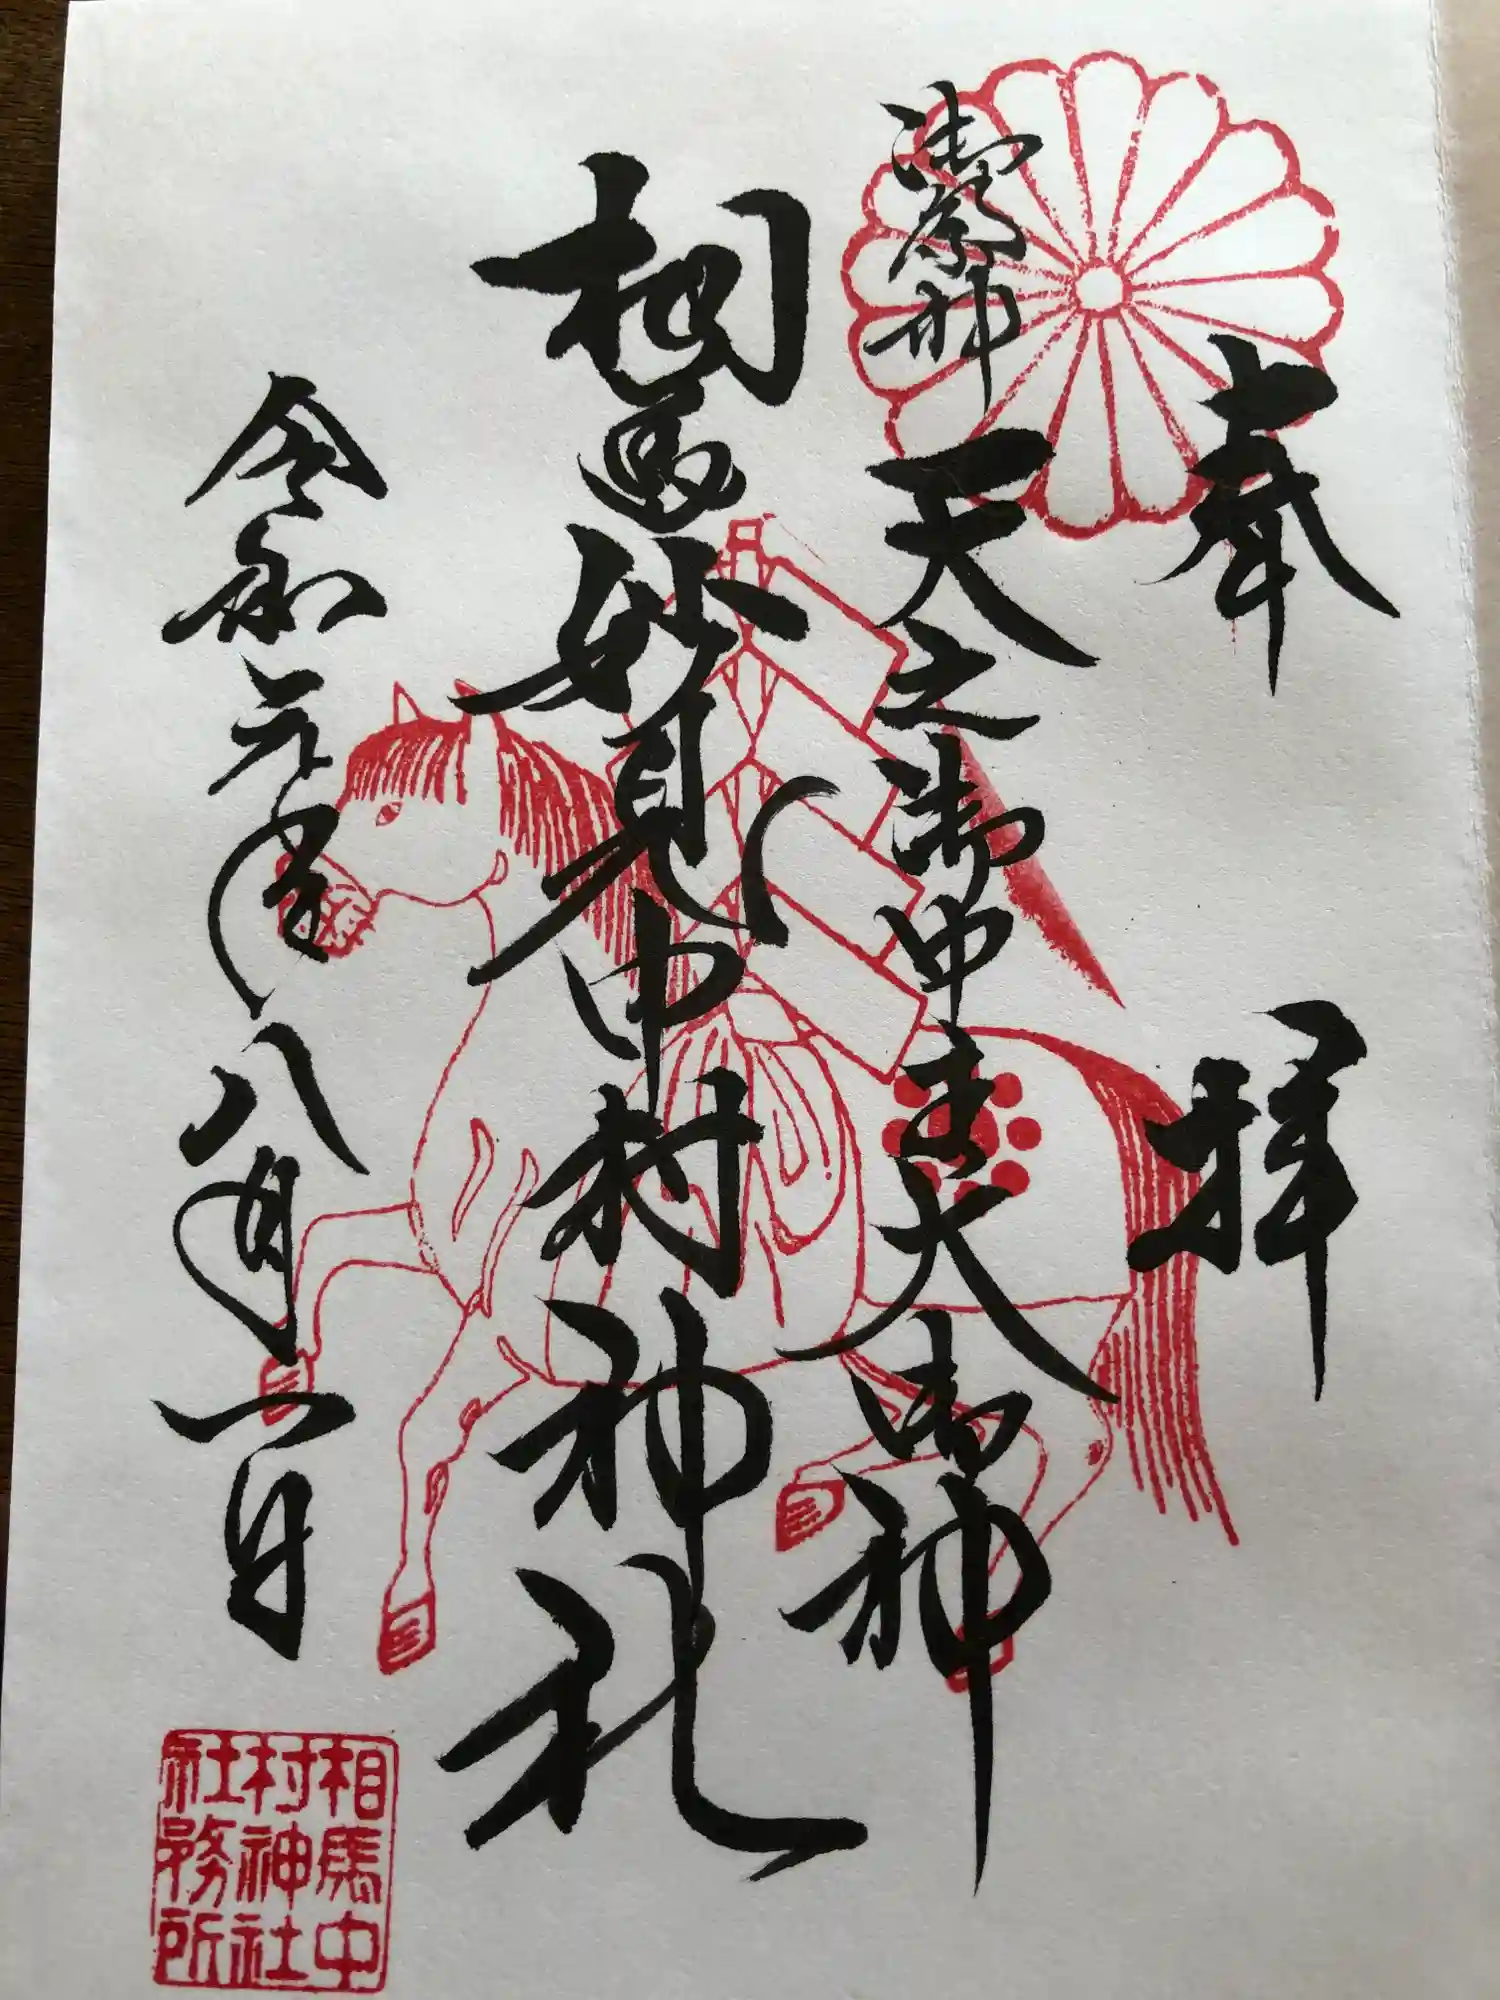 奉拝
御祭神 天之御中主大御神
相馬妙見中村神社
令和元年八月一日
相馬中
村神社
社務所